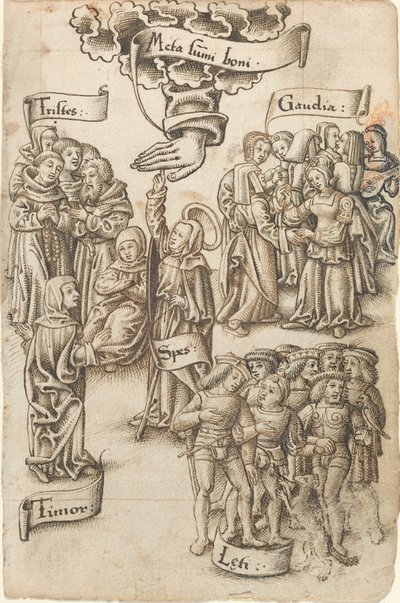 Meta sūmi boni ·
Tristes :·
Gaudia :·
Spes :·
Timor :·
Lęti :·